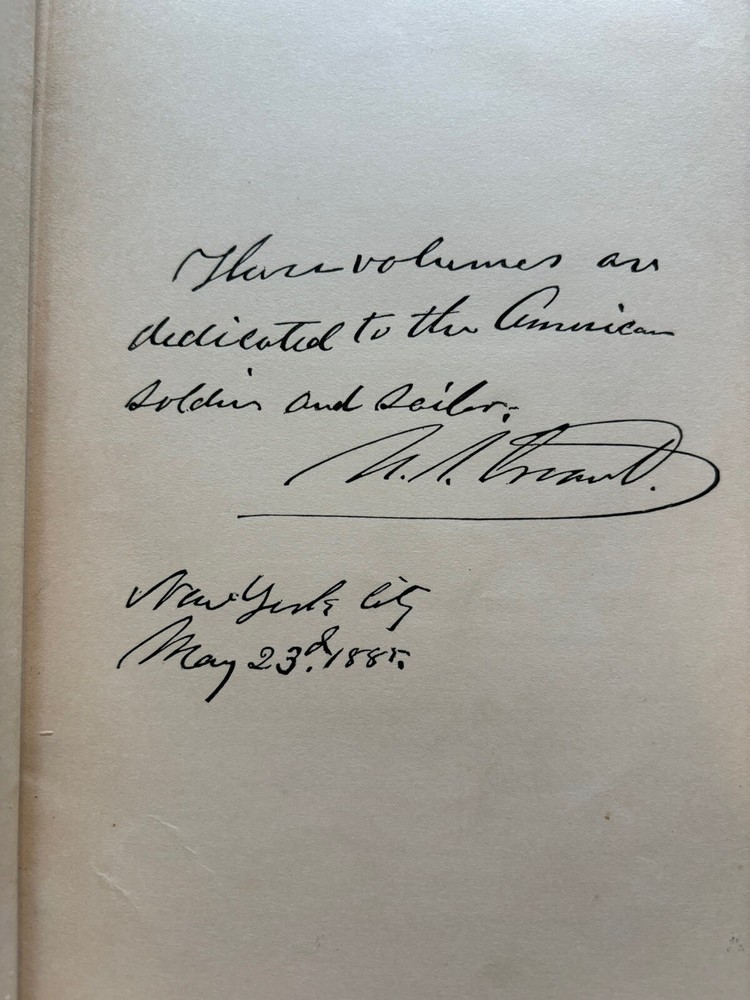 These volumes are
dedicated to the American
soldier and sailor.
U. S. Grant.
New York City
May 23d. 1885.